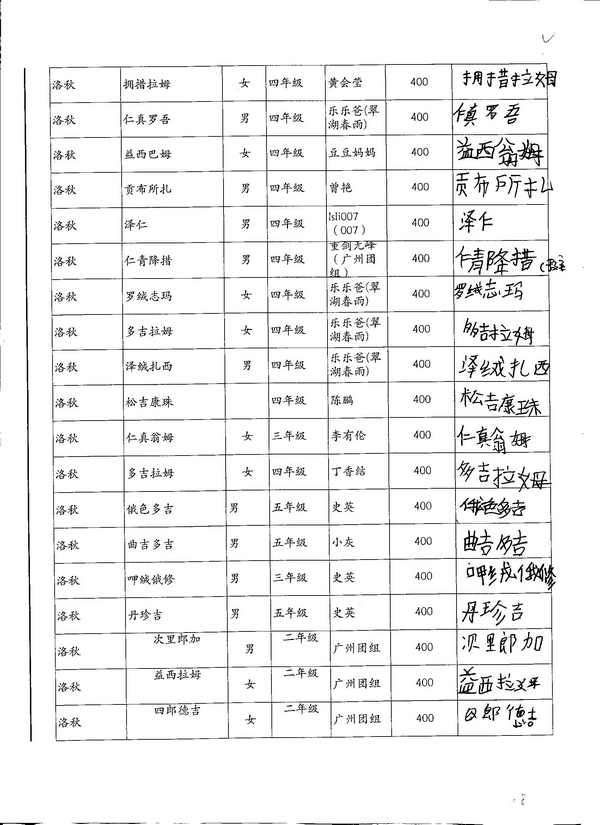 洛秋 拥措拉姆 女 四年级 黄会莹 400 拥措拉姆
洛秋 仁真罗吾 男 四年级 乐乐爸(翠湖春雨) 400 仁真罗吾
洛秋 益西巴姆 女 四年级 豆豆妈妈 400 益西翁姆
洛秋 贡布所扎 男 四年级 曾艳 400 贡布所扎
洛秋 泽仁 男 四年级 lsli007（007） 400 泽仁
洛秋 仁青降措 男 四年级 重剑无峰（广州团组） 400 仁青降措
洛秋 罗绒志玛 女 四年级 乐乐爸(翠湖春雨) 400 罗绒志玛
洛秋 多吉拉姆 女 四年级 乐乐爸(翠湖春雨) 400 多吉拉姆
洛秋 泽绒扎西 男 四年级 乐乐爸(翠湖春雨) 400 泽绒扎西
洛秋 松吉康珠 四年级 陈鹏 400 松吉康珠
洛秋 仁真翁姆 女 三年级 李有伦 400 仁真翁姆
洛秋 多吉拉姆 女 四年级 丁香结 400 多吉拉姆
洛秋 俄色多吉 男 五年级 史英 400 俄色多吉
洛秋 曲吉多吉 男 五年级 小灰 400 曲吉多吉
洛秋 呷绒俄修 男 三年级 史英 400 呷绒俄修
洛秋 丹珍吉 男 五年级 史英 400 丹珍吉
洛秋 次里郎加 男 二年级 广州团组 400 次里郎加
洛秋 益西拉姆 女 二年级 广州团组 400 益西拉
洛秋 四郎德吉 女 二年级 广州团组 400 四郎德吉